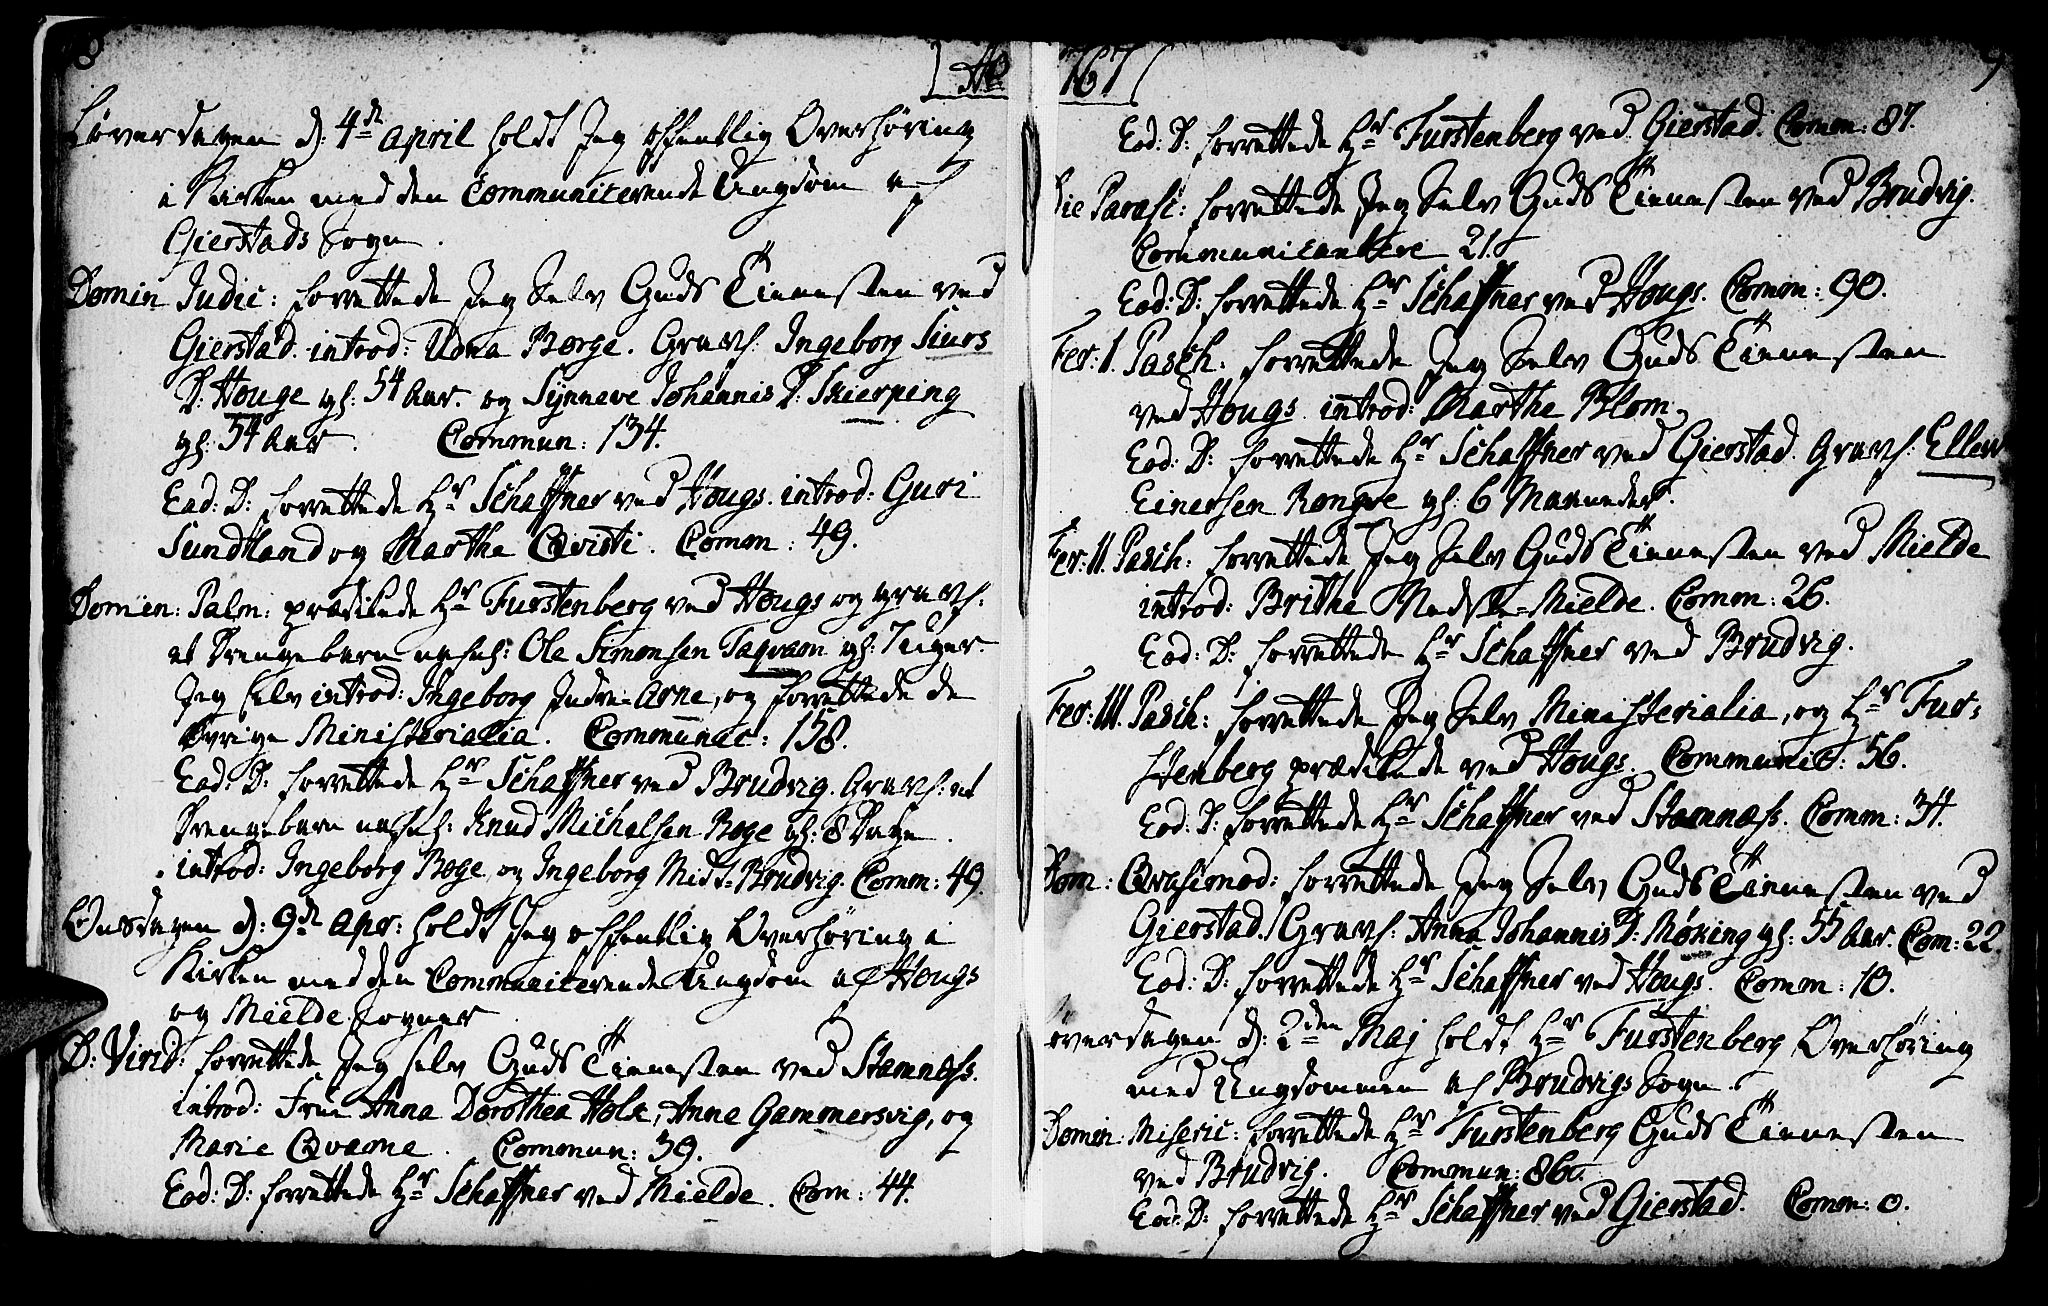 8
Ao 1767
9
Løverdagen d: 4de April holdt Jeg offentlig Overhøring
i Kirken med den Communicerende Ungdom af
Gierstads Sogn.
Domin Judic: forrettede Jeg Selv Guds Tienesten ved
Gierstad. introd: Udna Borge. Gravf. Ingeborg Siurs
D: Houge gl: 54 Aar. og Synneve Johannis D: Skierping
gl: 54 Aar. Commun: 134.
Eod: D: forrettede Hr Schaffner ved Hougs. introd: Guri
Sundtland og Marthe Qvisti. Comm: 49.
Domin: Palm: prædikede Hr Furstenberg ved Hougs og gravf:
et Drengebarn nafnl: Ole Simonsen Taqvam gl: 7 Uger.
Jeg selv introd: Ingeborg Indre-Arne, og forrettede de
øvrige Ministerialia. Communic: 158.
Eod: D: forrettede Hr Schaffner ved Brudvig. Gravf: et
Drengebarn nafnl: Knud Michelsen Roge gl: 8 Dage.
introd: Ingeborg Boge, og Ingeborg Midt-Brudvig. Comm: 49.
Onsdagen d: 9de Apr: holdt Jeg offentlig Overhøring i
Kirken med den Communicerende Ungdom af Hougs
og Mielde Sogner.
D: Virid: forrettede Jeg selv Guds Tienesten ved Stamnæss.
introd: Frue Anna Dorothea Holk, Anne Gammersvig, og
Marie Qvame. Commun: 39.
Eod: D: forrettede Hr Schaffner ved Mielde. Com: 44.
Eod: D: forrettede Hr Furstenberg ved Gierstad. Comm: 87.
Die Parasc: forrettede Jeg Selv Guds Tienesten ved Brudvig.
Communicantere 21.
Eod: D: forrettede Hr Schaffner ved Hougs. Comm: 90.
Fer: I. Pasch: forrettede Jeg Selv Guds Tienesten
ved Hougs. introd: Marthe Blom.
Eod: D: forrettede Hr Schaffner ved Gierstad. Gravf. Ellew
Einersen Rongve gl: 6 Maaneder.
Fer: II. Pasch: forrettede Jeg Selv Guds Tienesten ved Mielde
introd: Brithe Nedste-Mielde. Comm: 26.
Eod: D: forrettede Hr Schaffner ved Brudvig.
Fer: III. Pasch: forrettede Jeg Selv Ministerialia, og Hr Fur-
stenberg prædikede ved Hougs. Communic: 56.
Eod: D: forrettede Hr Schaffner ved Stamnæss. Comm: 34.
Dom: Qvasimod: forrettede Jeg Selv Guds Tienesten ved
Gierstad. Gravf: Anna Johannis D: Møking gl: 55 Aar. Com: 22.
Eod: D: forrettede Hr Schaffner ved Hougs. Comm: 10.
Løverdagen d: 2den Maj holdt Hr Furstenberg Overhøring
med Ungdommen af Brudvigs Sogn.
Domin: Miseric: forrettede Hr Furstenberg Guds Tienesten
ved Brudvig. Commun: 86.
Eod: D: forrettede Hr Schaffner ved Gierstad. Comm: 0.